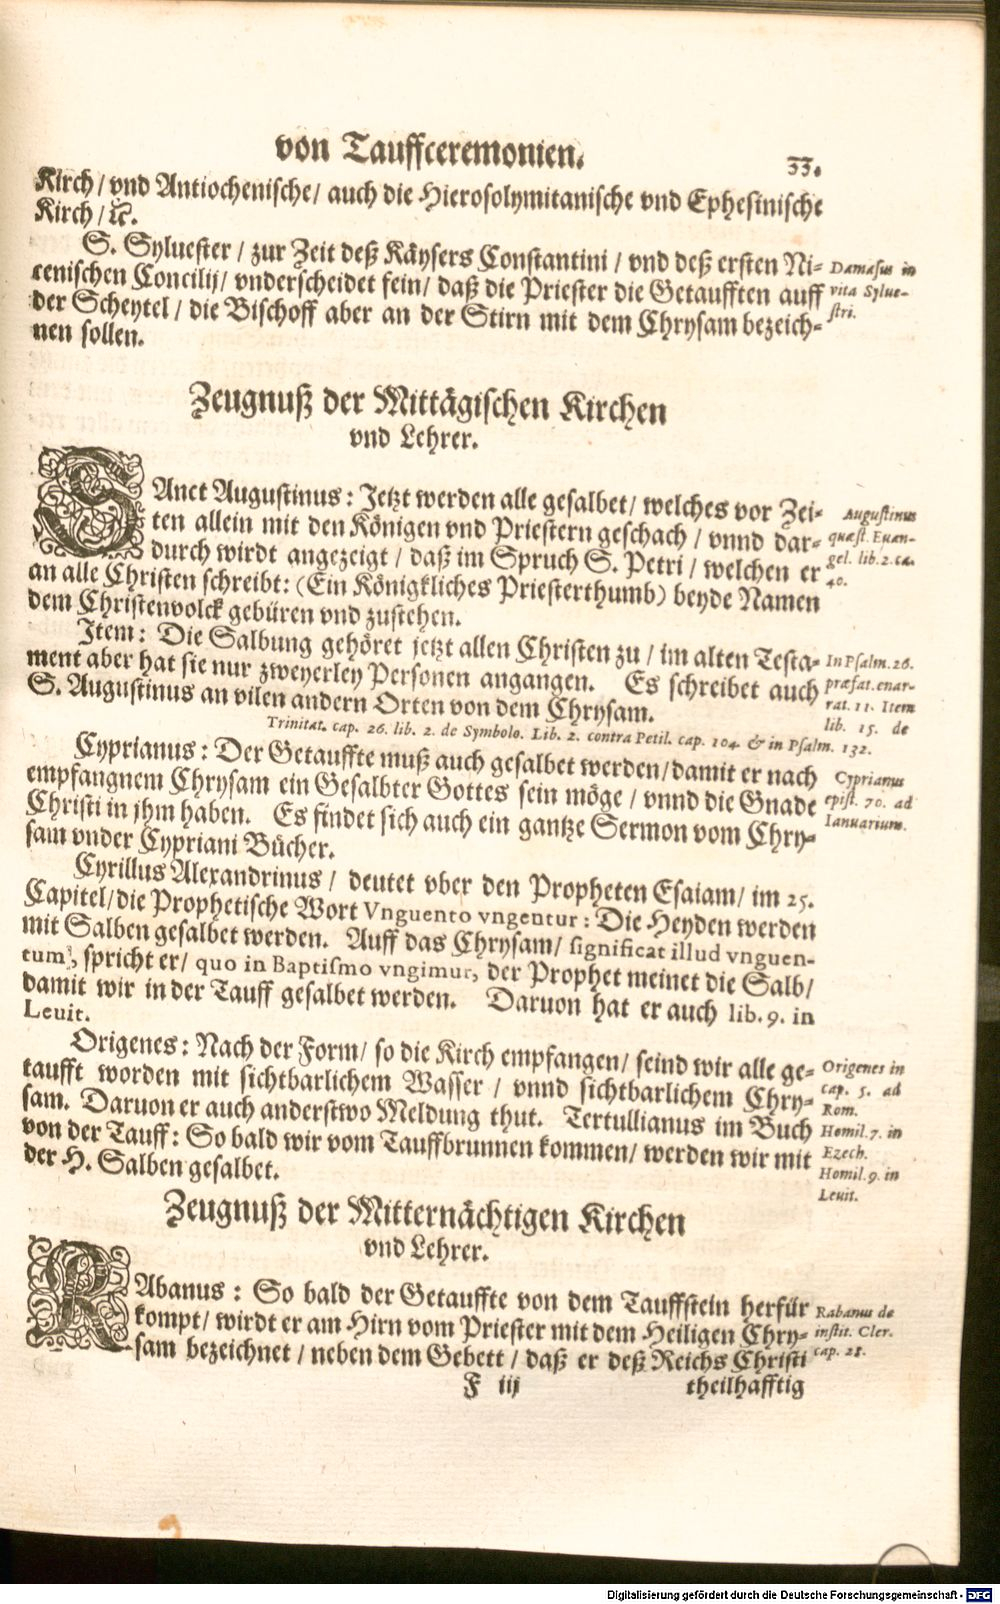 von Tauffceremonien.
33.
Kirch / vnd Antiochenische / auch die Hierosolymitanische vnd Ephesinische
Kirch / ꝛc.
S. Syluester / zur Zeit deß Käysers Constantini / vnd deß ersten Ni-
cenischen Concilij / vnderscheidet fein / daß die Priester die Getaufften auff
der Scheytel / die Bischoff aber an der Stirn mit dem Chrysam bezeich-
nen sollen.
Damasus in
vita Sylue-
stri.
Zeugnuß der Mittägischen Kirchen
vnd Lehrer.
SAnct Augustinus : Jetzt werden alle gesalbet / welches vor Zei-
ten allein mit den Königen vnd Priestern geschach / vnnd dar-
durch wirdt angezeigt / daß im Spruch S. Petri / welchen er
an alle Christen schreibt: (Ein Königkliches Priesterthumb) beyde Namen
dem Christenvolck gebüren vnd zustehen.
Augustinus
quæst. Euan-
gel. lib. 2. ca.
40.
Item : Die Salbung gehöret jetzt allen Christen zu / im alten Testa-
ment aber hat sie nur zweyerley Personen angangen. Es schreibet auch
S. Augustinus an vilen andern Orten von dem Chrysam.
In Psalm. 26.
præfat. enar-
rat. 11. Item
lib. 15. de
Trinitat. cap. 26. lib. 2. de Symbolo. Lib. 2. contra Petil. cap. 104. & in Psalm. 132.
Cyprianus : Der Getauffte muß auch gesalbet werden / damit er nach
empfangnem Chrysam ein Gesalbter Gottes sein möge / vnnd die Gnade
Christi in jhm haben. Es findet sich auch ein gantze Sermon vom Chry-
sam vnder Cypriani Bücher.
Cyprianus
epist. 70. ad
Ianuarium.
Cyrillus Alexandrinus / deutet vber den Propheten Esaiam / im 25.
Capitel / die Prophetische Wort Vnguento vngentur : Die Heyden werden
mit Salben gesalbet werden. Auff das Chrysam / significat illud vnguen-
tum, spricht er / quo in Baptismo vngimur, der Prophet meinet die Salb /
damit wir in der Tauff gesalbet werden. Daruon hat er auch lib. 9. in
Leuit.
Origenes : Nach der Form / so die Kirch empfangen / seind wir alle ge-
taufft worden mit sichtbarlichem Wasser / vnnd sichtbarlichem Chry-
sam. Daruon er auch anderstwo Meldung thut. Tertullianus im Buch
von der Tauff : So bald wir vom Tauffbrunnen kommen / werden wir mit
der H. Salben gesalbet.
Origenes in
cap. 5. ad
Rom.
Homil. 7. in
Ezech.
Homil. 9. in
Leuit.
Zeugnuß der Mitternächtigen Kirchen
vnd Lehrer.
RAbanus : So bald der Getauffte von dem Tauffstein herfür
kompt / wirdt er am Hirn vom Priester mit dem Heiligen Chry-
sam bezeichnet / neben dem Gebett / daß er deß Reichs Christi
Rabanus de
instit. Cler.
cap. 28.
F iij
theilhafftig
Digitalisierung gefördert durch die Deutsche Forschungsgemeinschaft - DFG